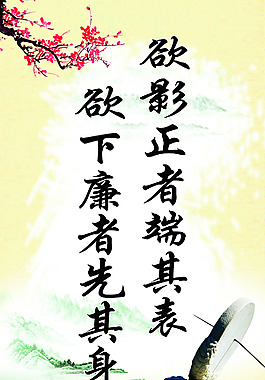 欲影正者端其表
欲下廉者先其身